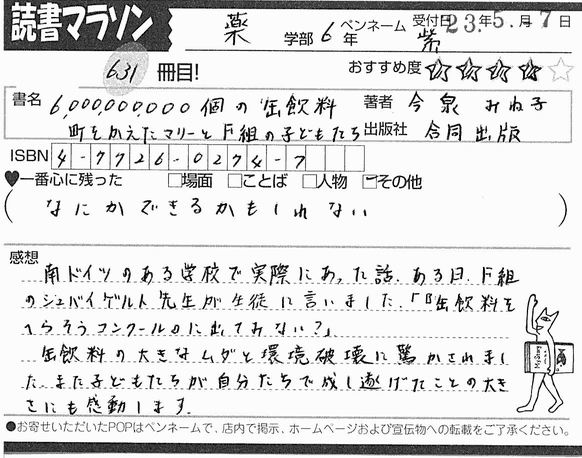 読書マラソン
薬 学部 6 年 ペンネーム 紫 受付日 23年5.月7日
631 冊目!
おすすめ度 ☆☆☆☆☆
書名 6,000,000,000個の缶飲料 著者 今泉みね子
町をかえたマリーとF組の子どもたち 出版社 合同出版
ISBN 4-7726-0274-7
♥一番心に残った □場面 □ことば □人物 □その他
( なにかできるかもしれない )
感想 南ドイツのある学校で実際にあった話.ある日.F組
のシュバイゲルト先生が生徒に言いました.「『缶飲料を
へらそうコンクール』に出てみない?」
缶飲料の大きなムダと環境破壊に驚かされまし
た.また子どもたちが自分たちで成し遂げたことの大き
さにも感動します.
●お寄せいただいたPOPはペンネームで、店内で掲示、ホームページおよび宣伝物への転載をご了承ください。